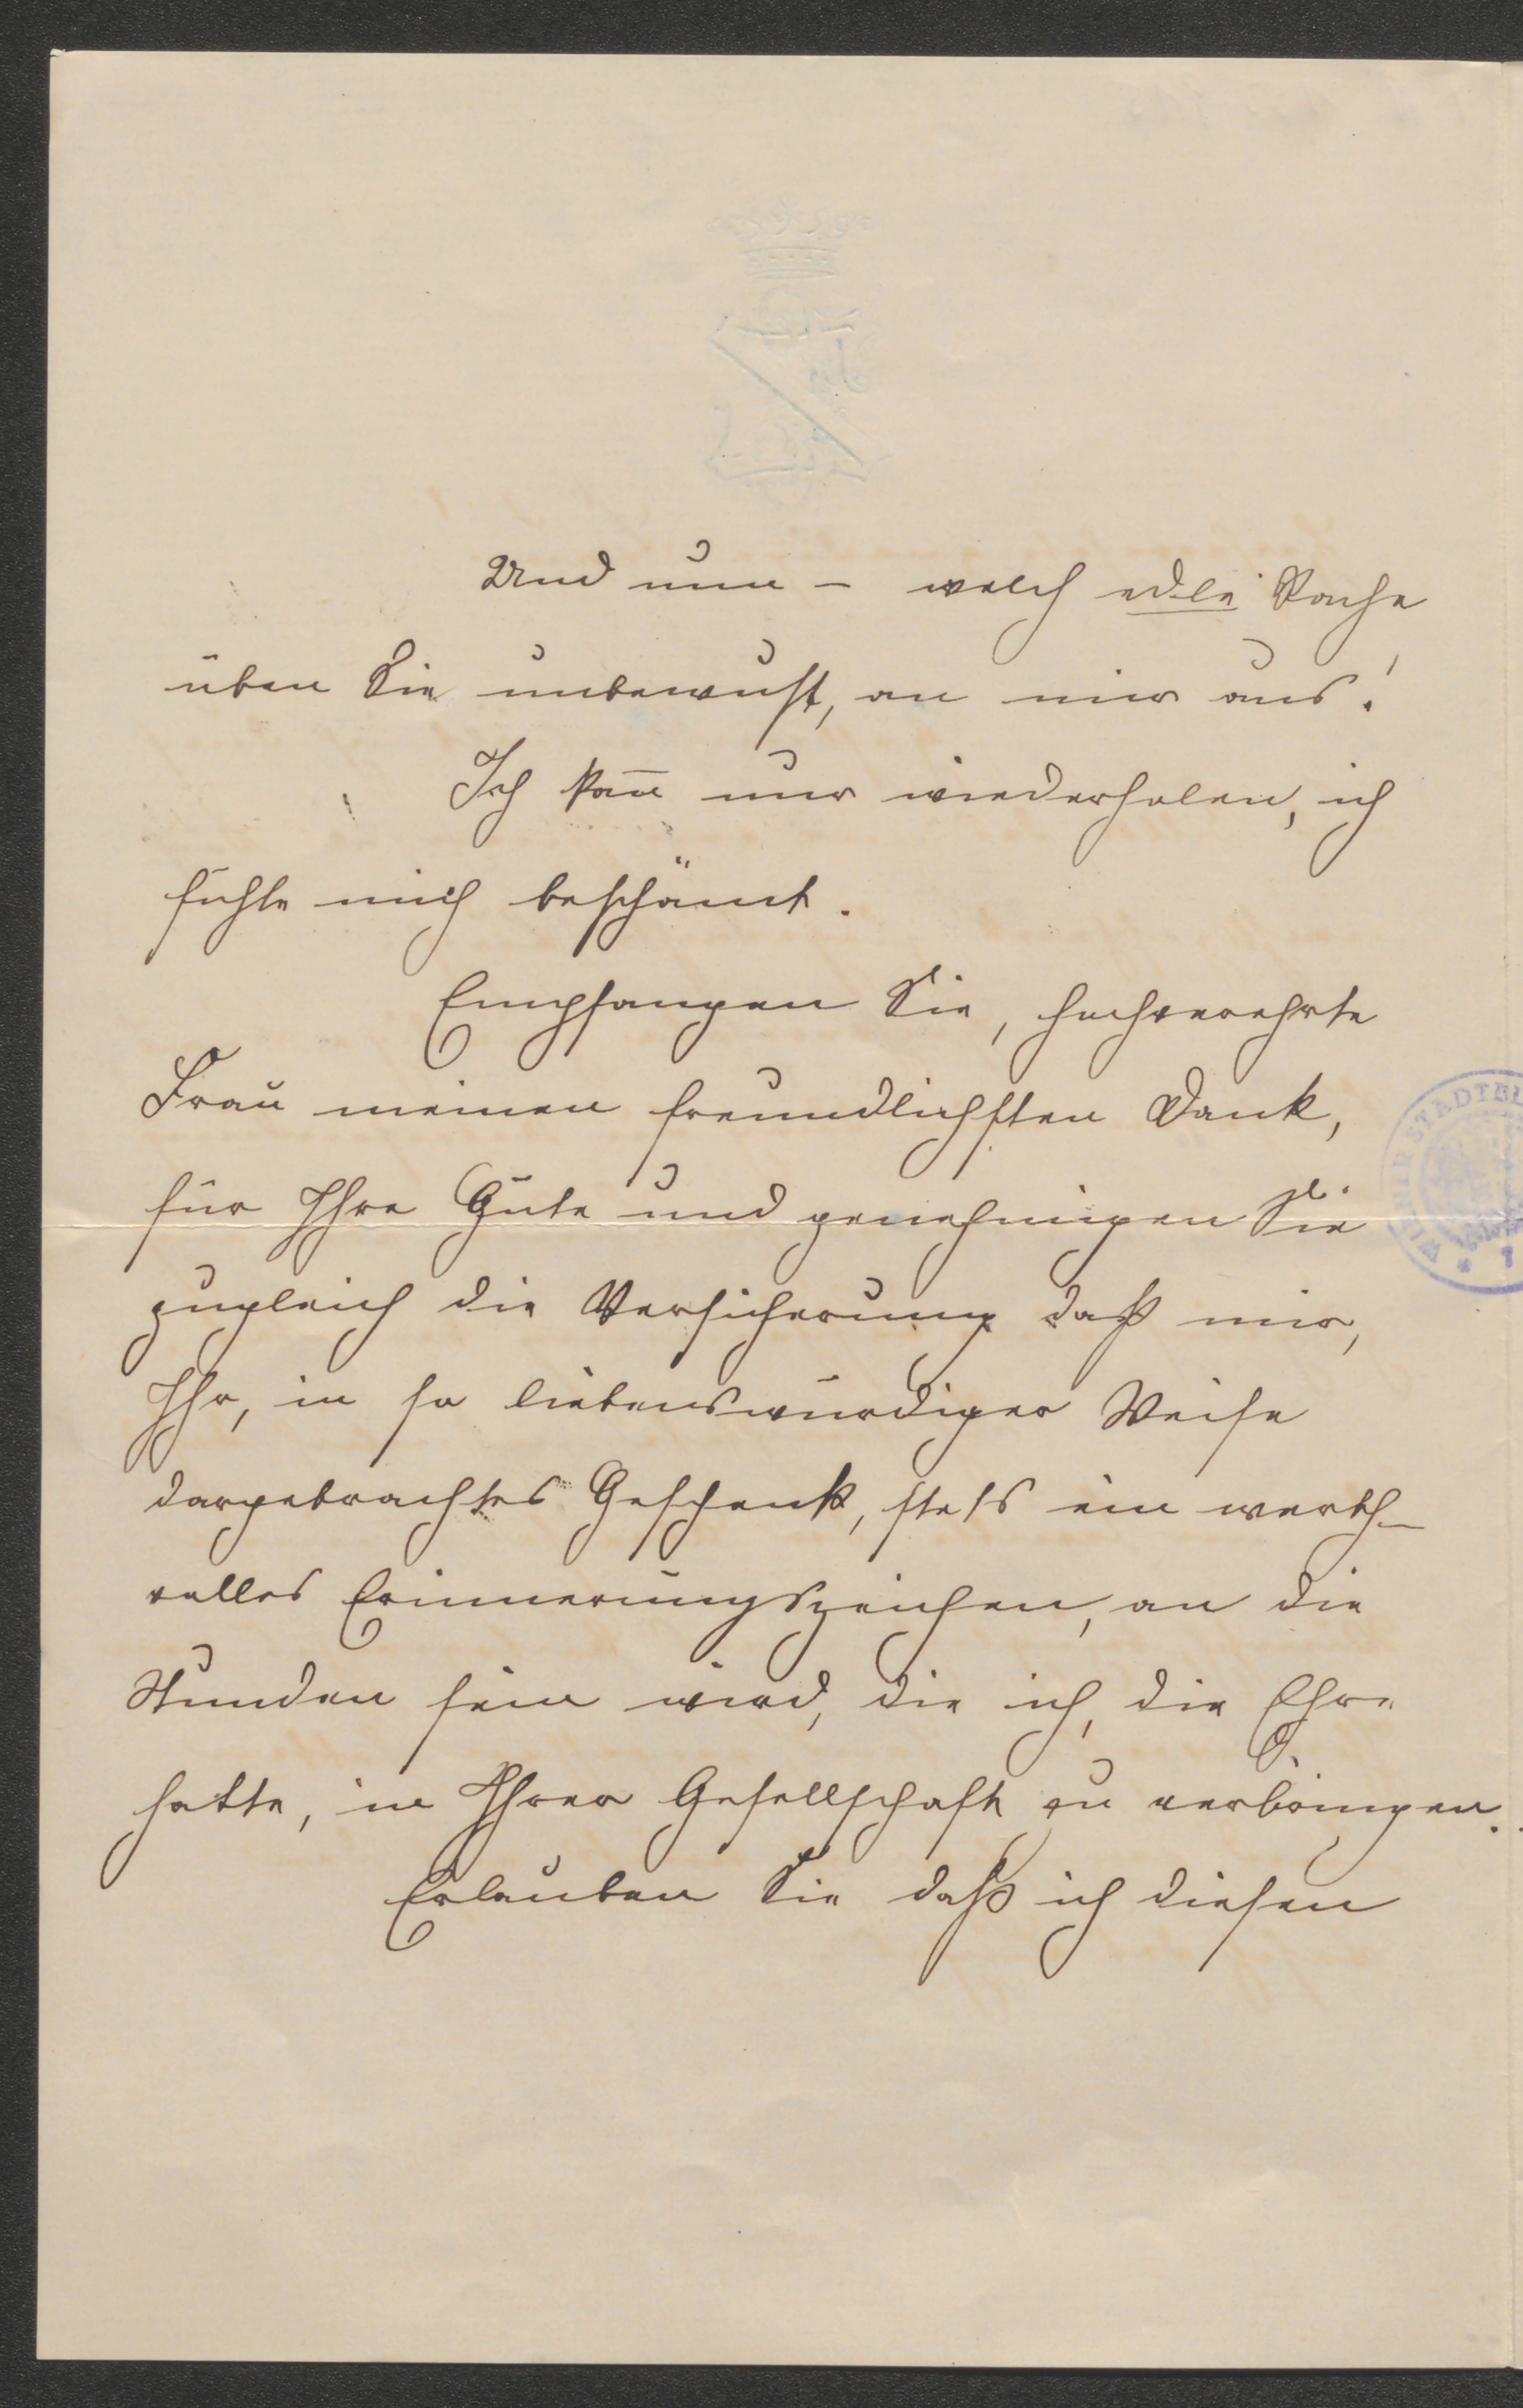 Und nun – welch edle Rache
üben Sie unbewußt, an mir aus!
Ich kan̄ nur wiederholen, ich
fühle mich beschämt.
Empfangen Sie, hochverehrte
Frau meinen freundlichsten Dank,
für Ihre Güte und genehmigen Sie
zugleich die Versicherung daß mir,
Ihr, in so liebenswürdiger Weise
dargebrachtes Geschenk, stets ein werth-
volles Erinnerungszeichen, an die
Stunden sein wird, die ich, die Ehre
hatte, in Ihrer Gesellschaft zu verbringen.
Erlauben Sie daß ich diesen